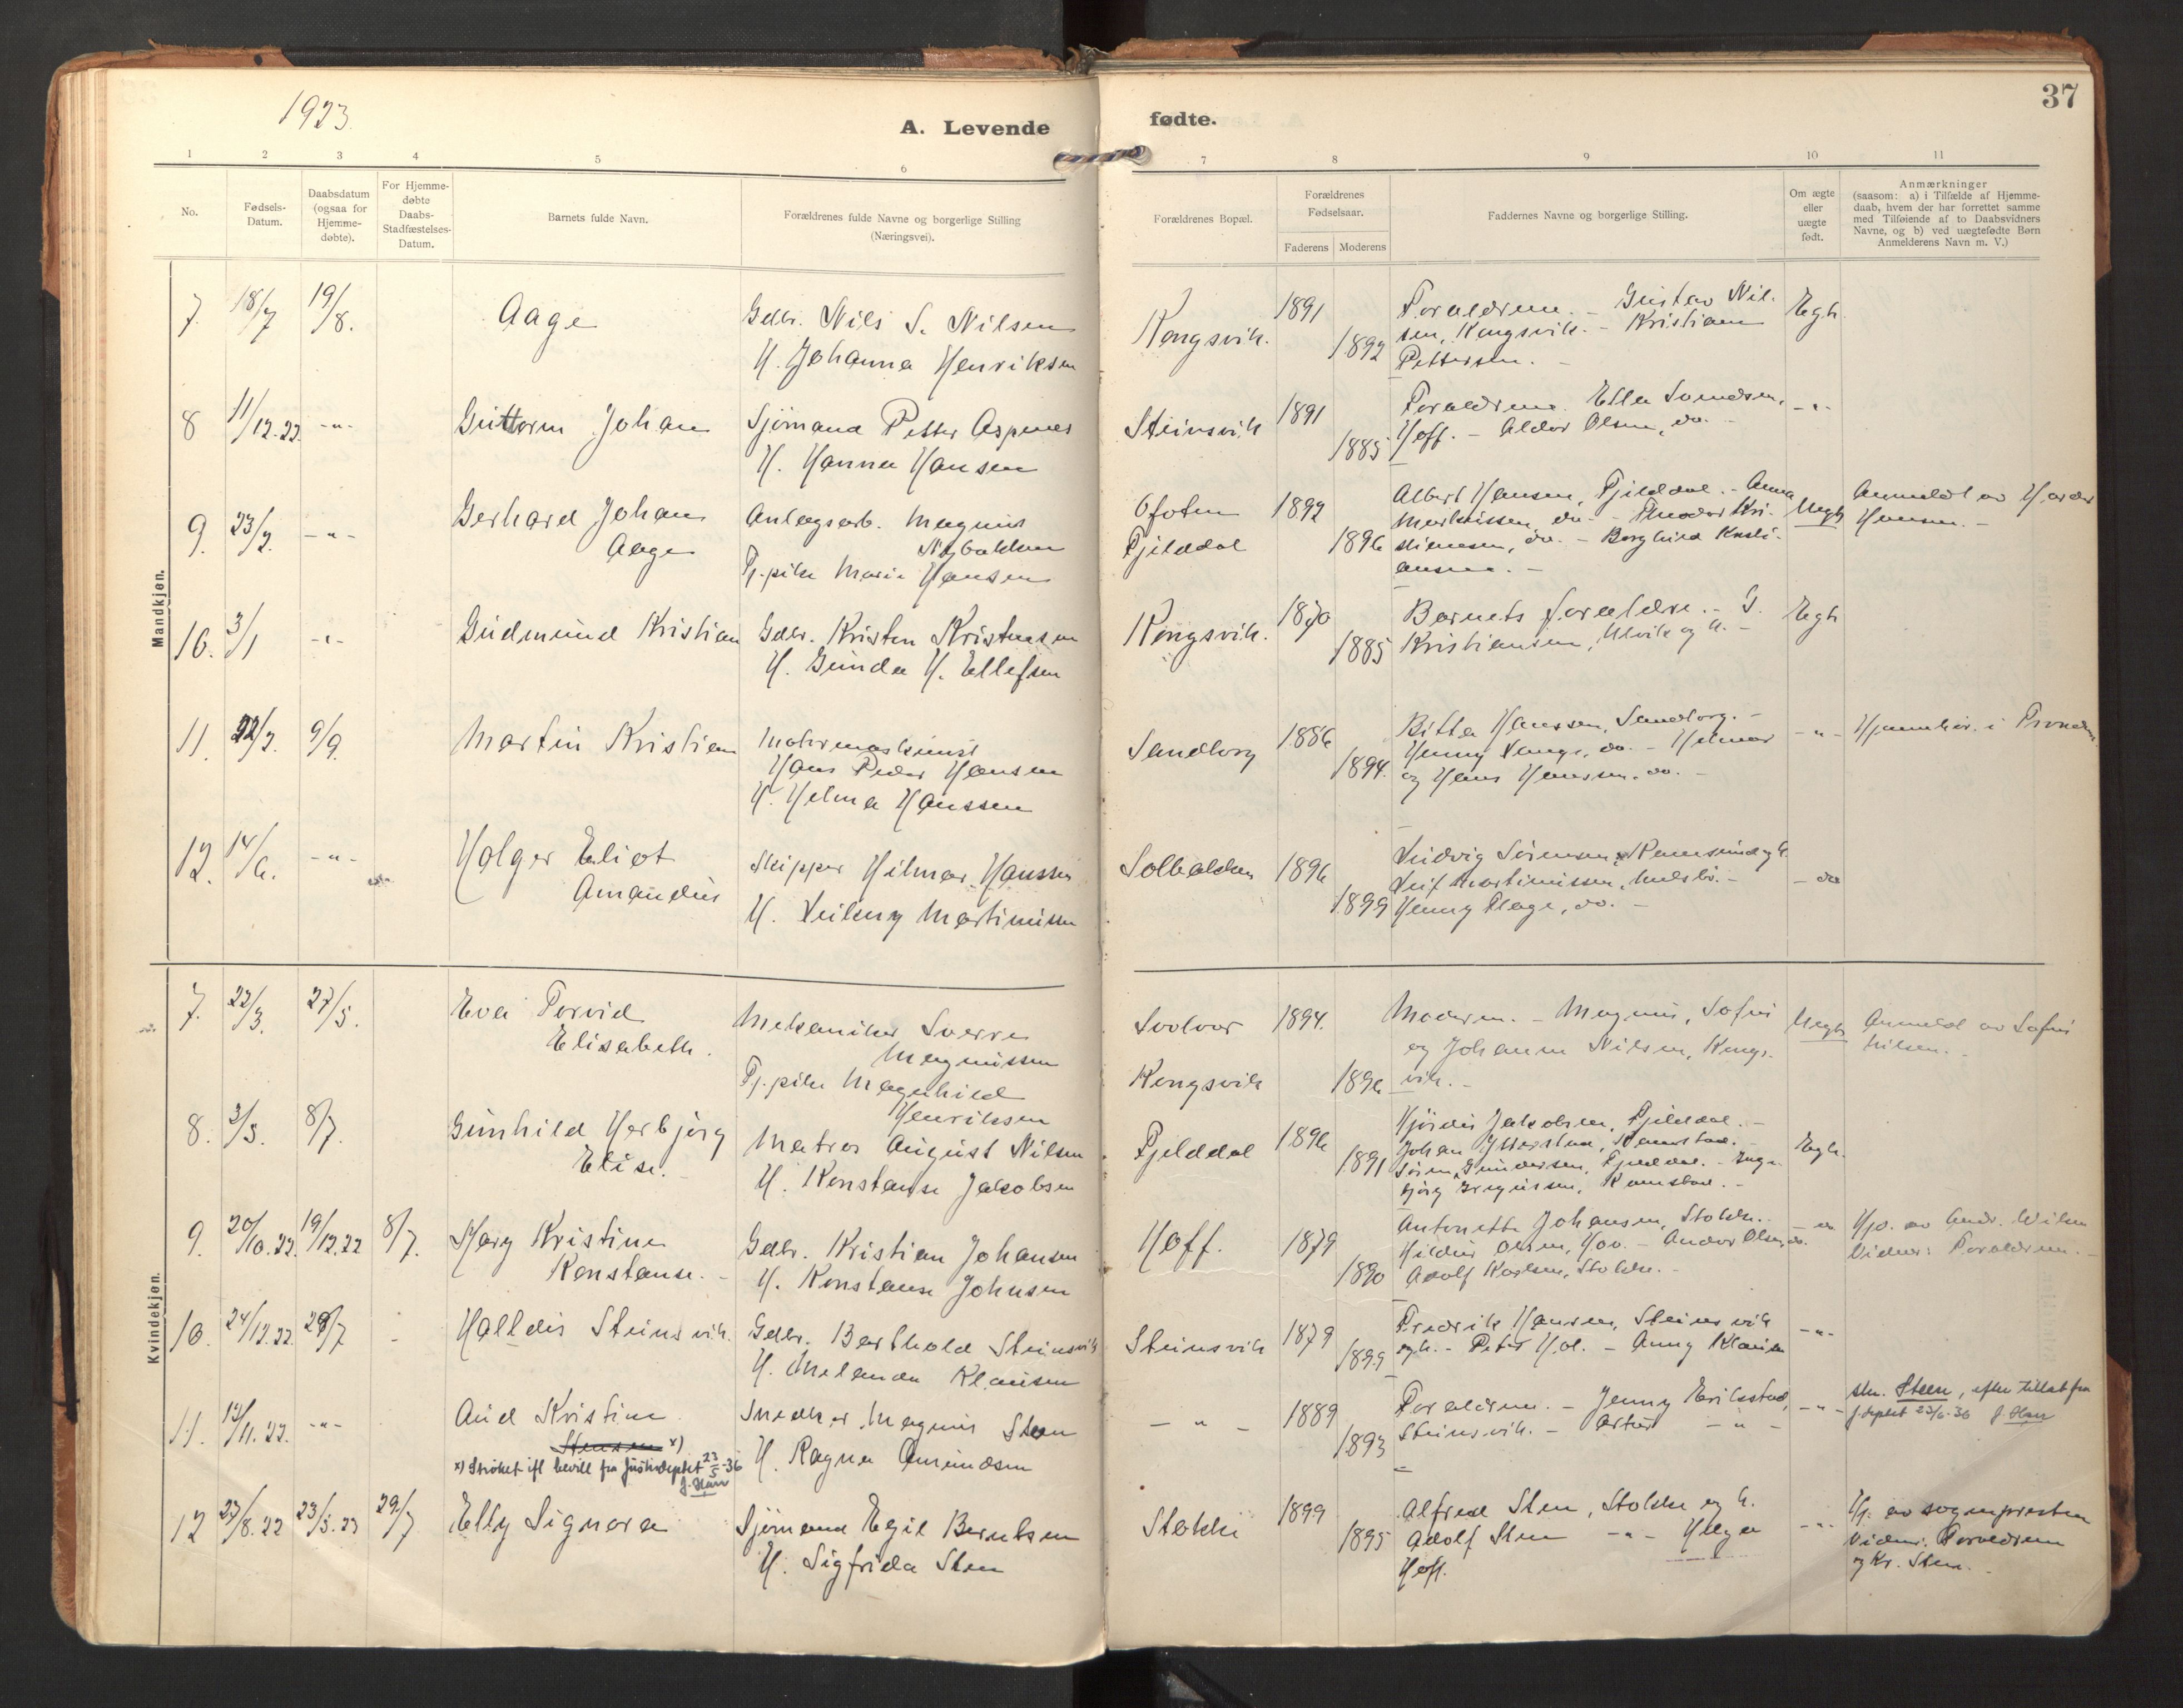 1923.
A. Levende fødte.
37
1 2 3 4 5 6 7 8 9 10 11
No.
Fødsels-
Datum.
Daabsdatum
(ogsaa for
Hjemme-
døbte).
For Hjemme-
døbte
Daabs-
Stadfæstelses-
Datum.
Barnets fulde Navn.
Forældrenes fulde Navne og borgerlige Stilling
(Næringsvei).
Forældrenes Bopæl.
Forældrenes
Fødselsaar.
Faderens Moderens
Faddernes Navne og borgerlige Stilling.
Om ægte
eller
uægte
født.
Anmærkninger
(saasom: a) i Tilfælde af Hjemme-
daab, hvem der har forrettet samme
med Tilføiende af to Daabsvidners
Navne, og b) ved uægtefødte Børn
Anmelderens Navn m. V.)
Mandkjøn.
7. 18/7 19/8. Aage
Gdbr. Nils S. Nilsen
H. Johanna Henriksen
Kongsvik. 1891 1892
Forældrene. - Gustav Nil-
sen, Kongsvik. - Kristiane
Pettersen. -
Egte
8 11/12.22. -"- Guttorm Johan
Sjømand Petter Aspenes
H. Hanna Hansen
Steinsvik 1891 1885
Forældrene. Ella Svendsen,
Hoff. - Aldor Olsen, do. -
-"-
9. 23/2. -"- Gerhard Johan
Aage
Anlægsarb. Magnus
Fj.pike Marie Hansen
Ofoten 1892
Fjelddal 1896
Albert Hansen, Fjelddal. - Anna
Martinissen, do. - Theodor Kri-
stiansen, do. - Borghild Kristi-
ansen. -
Uegte
Anmeldt av
Hansen. -
10. 3/1 -"- Gudmund Kristian
Gdbr. Kristen Kristensen
H. Gunda H. Ellefsen
Kongsvik. 1870 1885
Barnets forældre. - G.
Kristiansen, Ulvik og h. -
Egte
11. 22/2. 9/9. Martin Kristian
Motormaskinist
Hans Peder Hansen
H. Helma Hanssen
Sandtorg 1886 1894.
Hanssen, Sandtorg. -
Henny Lange, do. - Hilmar
og Hans Hanssen, do. -
-"-
12. 14/6. -"- Holger Eliot
Amandus
Skipper Hilmar Hanssen
H. Martinissen
Solbakken 1896 1899
Ludvig Sørensen, Ramsund og h.
Leif Martinissen,
Henny Plage, do. -
- do
Kvindekjøn.
7. 22/3. 27/5. Eva Torvid
Elisabeth.
Mekaniker Sverre
Magnussen
Fj.pike Magnhild
Henriksen
Svolvær 1894.
Kongsvik 1896
Moderen. - Magnus, Sofus
og Johanne Nilsen, Kongs-
vik. -
Uegte
Anmeld av Sofus
Nilsen. -
8. 3/5. 8/7. Gunhild Herbjørg
Elise. -
Matros August Nilsen
H. Konstanse Jakobsen
Fjelddal 1896 1891
Hjørdis Jakobsen, Fjelddal. -
Johan
Søren Gundersen, Fjelddal. - Inge-
bjørg Gregussen, Ramstad. -
Egte.
9. 20/10.22. 19/12.22 8/7. Mary Kristine
Konstanse. -
Gdbr. Kristian Johansen
H. Konstanse Johnsen
Hoff. 1879 1890
Antonette Johansen, Stokke.
Hildur Olsen, Hov. - Andor Olsen, do.
Adolf Karlsen, Stokke. -
- do
Hjd. av Andr. Nilsen
Vidner: Forældrene. -
10. 24/12.22. 29/7 - Halldis Steinsvik.
Gdbr. Berthold Steinsvik
H. Melanda Klausen
Steinsvik 1879 1899
Fredrik Hansen, Steinsvik
og h. - Peter Hol. - Anny Klausen
-"-
11. 12/11.22. -"- Aud Kristine
Stensen x)
x) Strøket ifl bevill fra Justisdeptet 23/5-36
J. Harr
Snedker Magnus Steen
H. Ragna Amundsen
-"- 1889 1893
Forældrene. - Jenny Erikstad,
Steinsvik. - Artur -"-
-"-
skr. Steen, efter tillat fra
J.deptet 23/5-36 J. Harr
12 27/8.22 23/5.23 29/7 Elly Signora
Sjømand Egil Berntsen
H. Sigfrida Sten
Stokke 1899 1895
Alfred Sten, Stokke og h.
Adolf Sten -"- Helga
Hoff.
-"-
Hj. av sognepresten
Vidner: Forældrene
og Kr. Sten. -